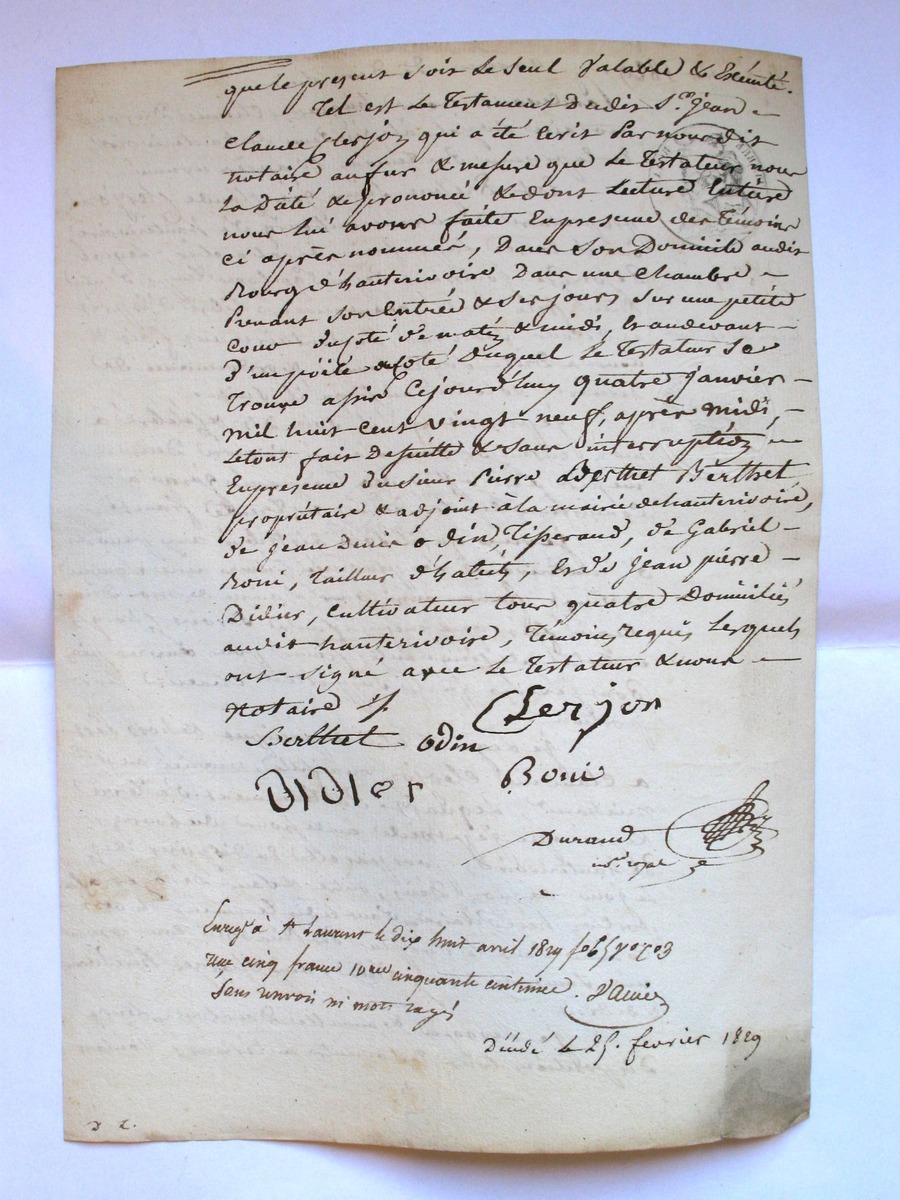 que le present soit le seul Valable & Exécuté.
Tel est Le Testament Dudit S.r jean
Claude Clerjon qui a été Ecrit Par nous dit
notaire au fur & mesure que Le Testateur nous
La Dicté & prononcé & dont Lecture Entiere
nous lui avons faite En presence des Témoins
ci après nommés, Dans Son Domicile audit
Bourg d'hauterivoire Dans une Chambre
Prenant son Entrée & ses jours sur une petite
Cour du coté de matin & midi, Et au devant
D'un poële a coté duquel Le Testateur Se
Trouve assis, Cejourd'huy quatre janvier
mil huit cent vingt neuf, après midi,
Le tout fait de suitte & sans interruption
En presence du sieur Pierre Berthet
propriétaire & adjoint à la mairie de hauterivoire,
de jean Denis odin, Tisserand, De Gabriel
Boni, Tailleur d'habits, Et de jean pierre
Didier, Cultivateur tous quatre Domiciliés
audit hauterivoire, Témoins requis Lesquels
ont Signé avec Le Testateur & nous
Notaire
Clerjon
Berthet odin
DiDier Boni
Durand
not.re royal
Enreg.é à St Laurent le dix huit avril 1829
reçu cinq francs 10.me cinquante centimes.
Sans renvoi ni mots rayés
Décédé Le 25. fevrier 1829